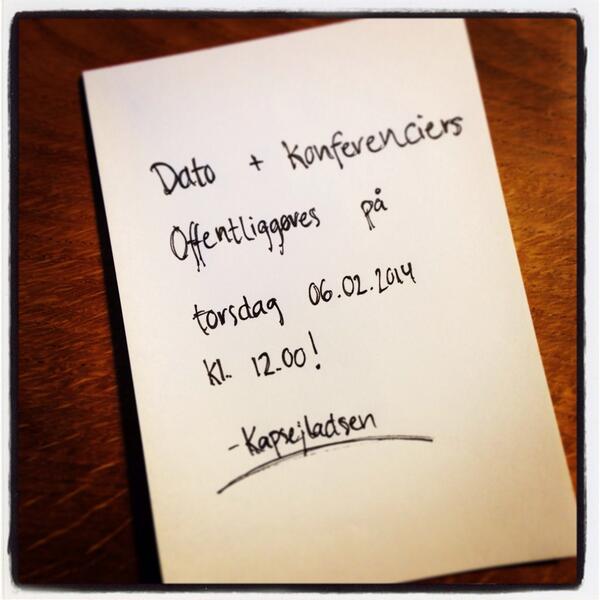 Dato + Konferenciers
Offentliggøres på
torsdag 06.02.2014
Kl. 12.00!
- Kapsejladsen